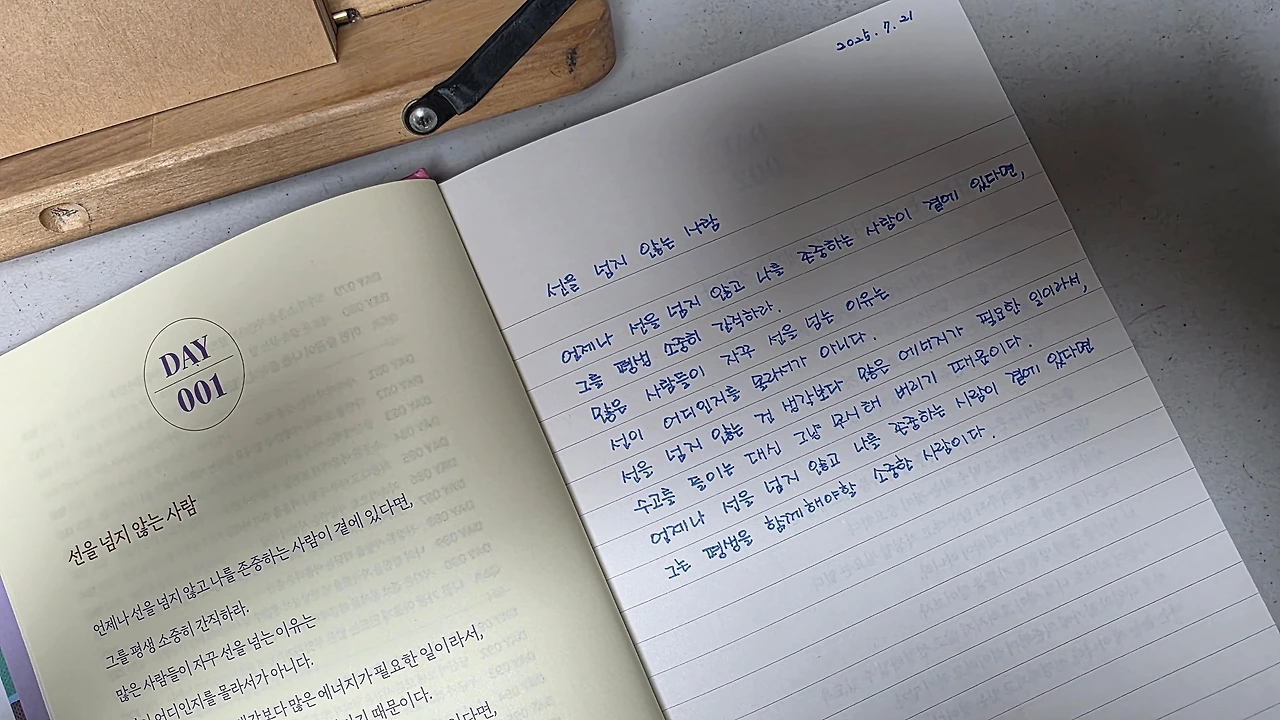 DAY
001
선을 넘지 않는 사람
언제나 선을 넘지 않고 나를 존중하는 사람이 곁에 있다면,
그를 평생 소중히 간직하라.
많은 사람들이 자꾸 선을 넘는 이유는
어디인지를 몰라서가 아니다.
많은 에너지가 필요한 일이라서,
때문이다.
있다면,
2025. 7. 21
선을 넘지 않는 사람
언제나 선을 넘지 않고 나를 존중하는 사람이 곁에 있다면,
그를 평생 소중히 간직하라.
많은 사람들이 자꾸 선을 넘는 이유는
선이 어디인지를 몰라서가 아니다.
선을 넘지 않는 건 생각보다 많은 에너지가 필요한 일이라서,
수고를 들이는 대신 그냥 무시해 버리기 때문이다.
언제나 선을 넘지 않고 나를 존중하는 사람이 곁에 있다면
그는 평생을 함께해야할 소중한 사람이다.